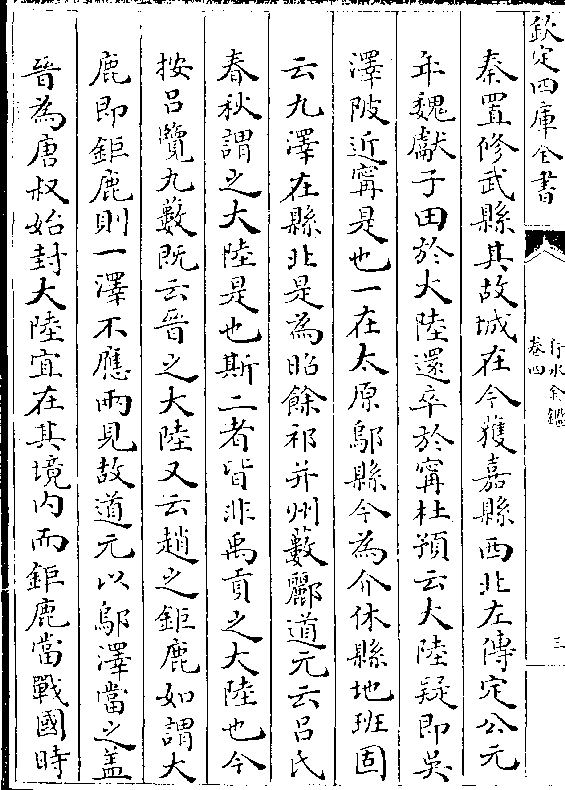 欽定四庫全書
行水金鑑
卷四
三
秦置修武縣其故城在今獲嘉縣西北左傳定公元
年魏獻子田於大陸還卒於甯杜預云大陸疑即吳
澤陂近甯是也一在太原鄔縣今為介休縣地班固
云九澤在縣北是為昭餘祁并州藪酈道元云呂氏
春秋謂之大陸是也斯二者皆非禹貢之大陸也今
按呂覽九藪既云晉之大陸又云趙之鉅鹿如謂大
鹿即鉅鹿則一澤不應兩見故道元以鄔澤當之盖
晉為唐叔始封大陸宜在其境内而鉅鹿當戰國時